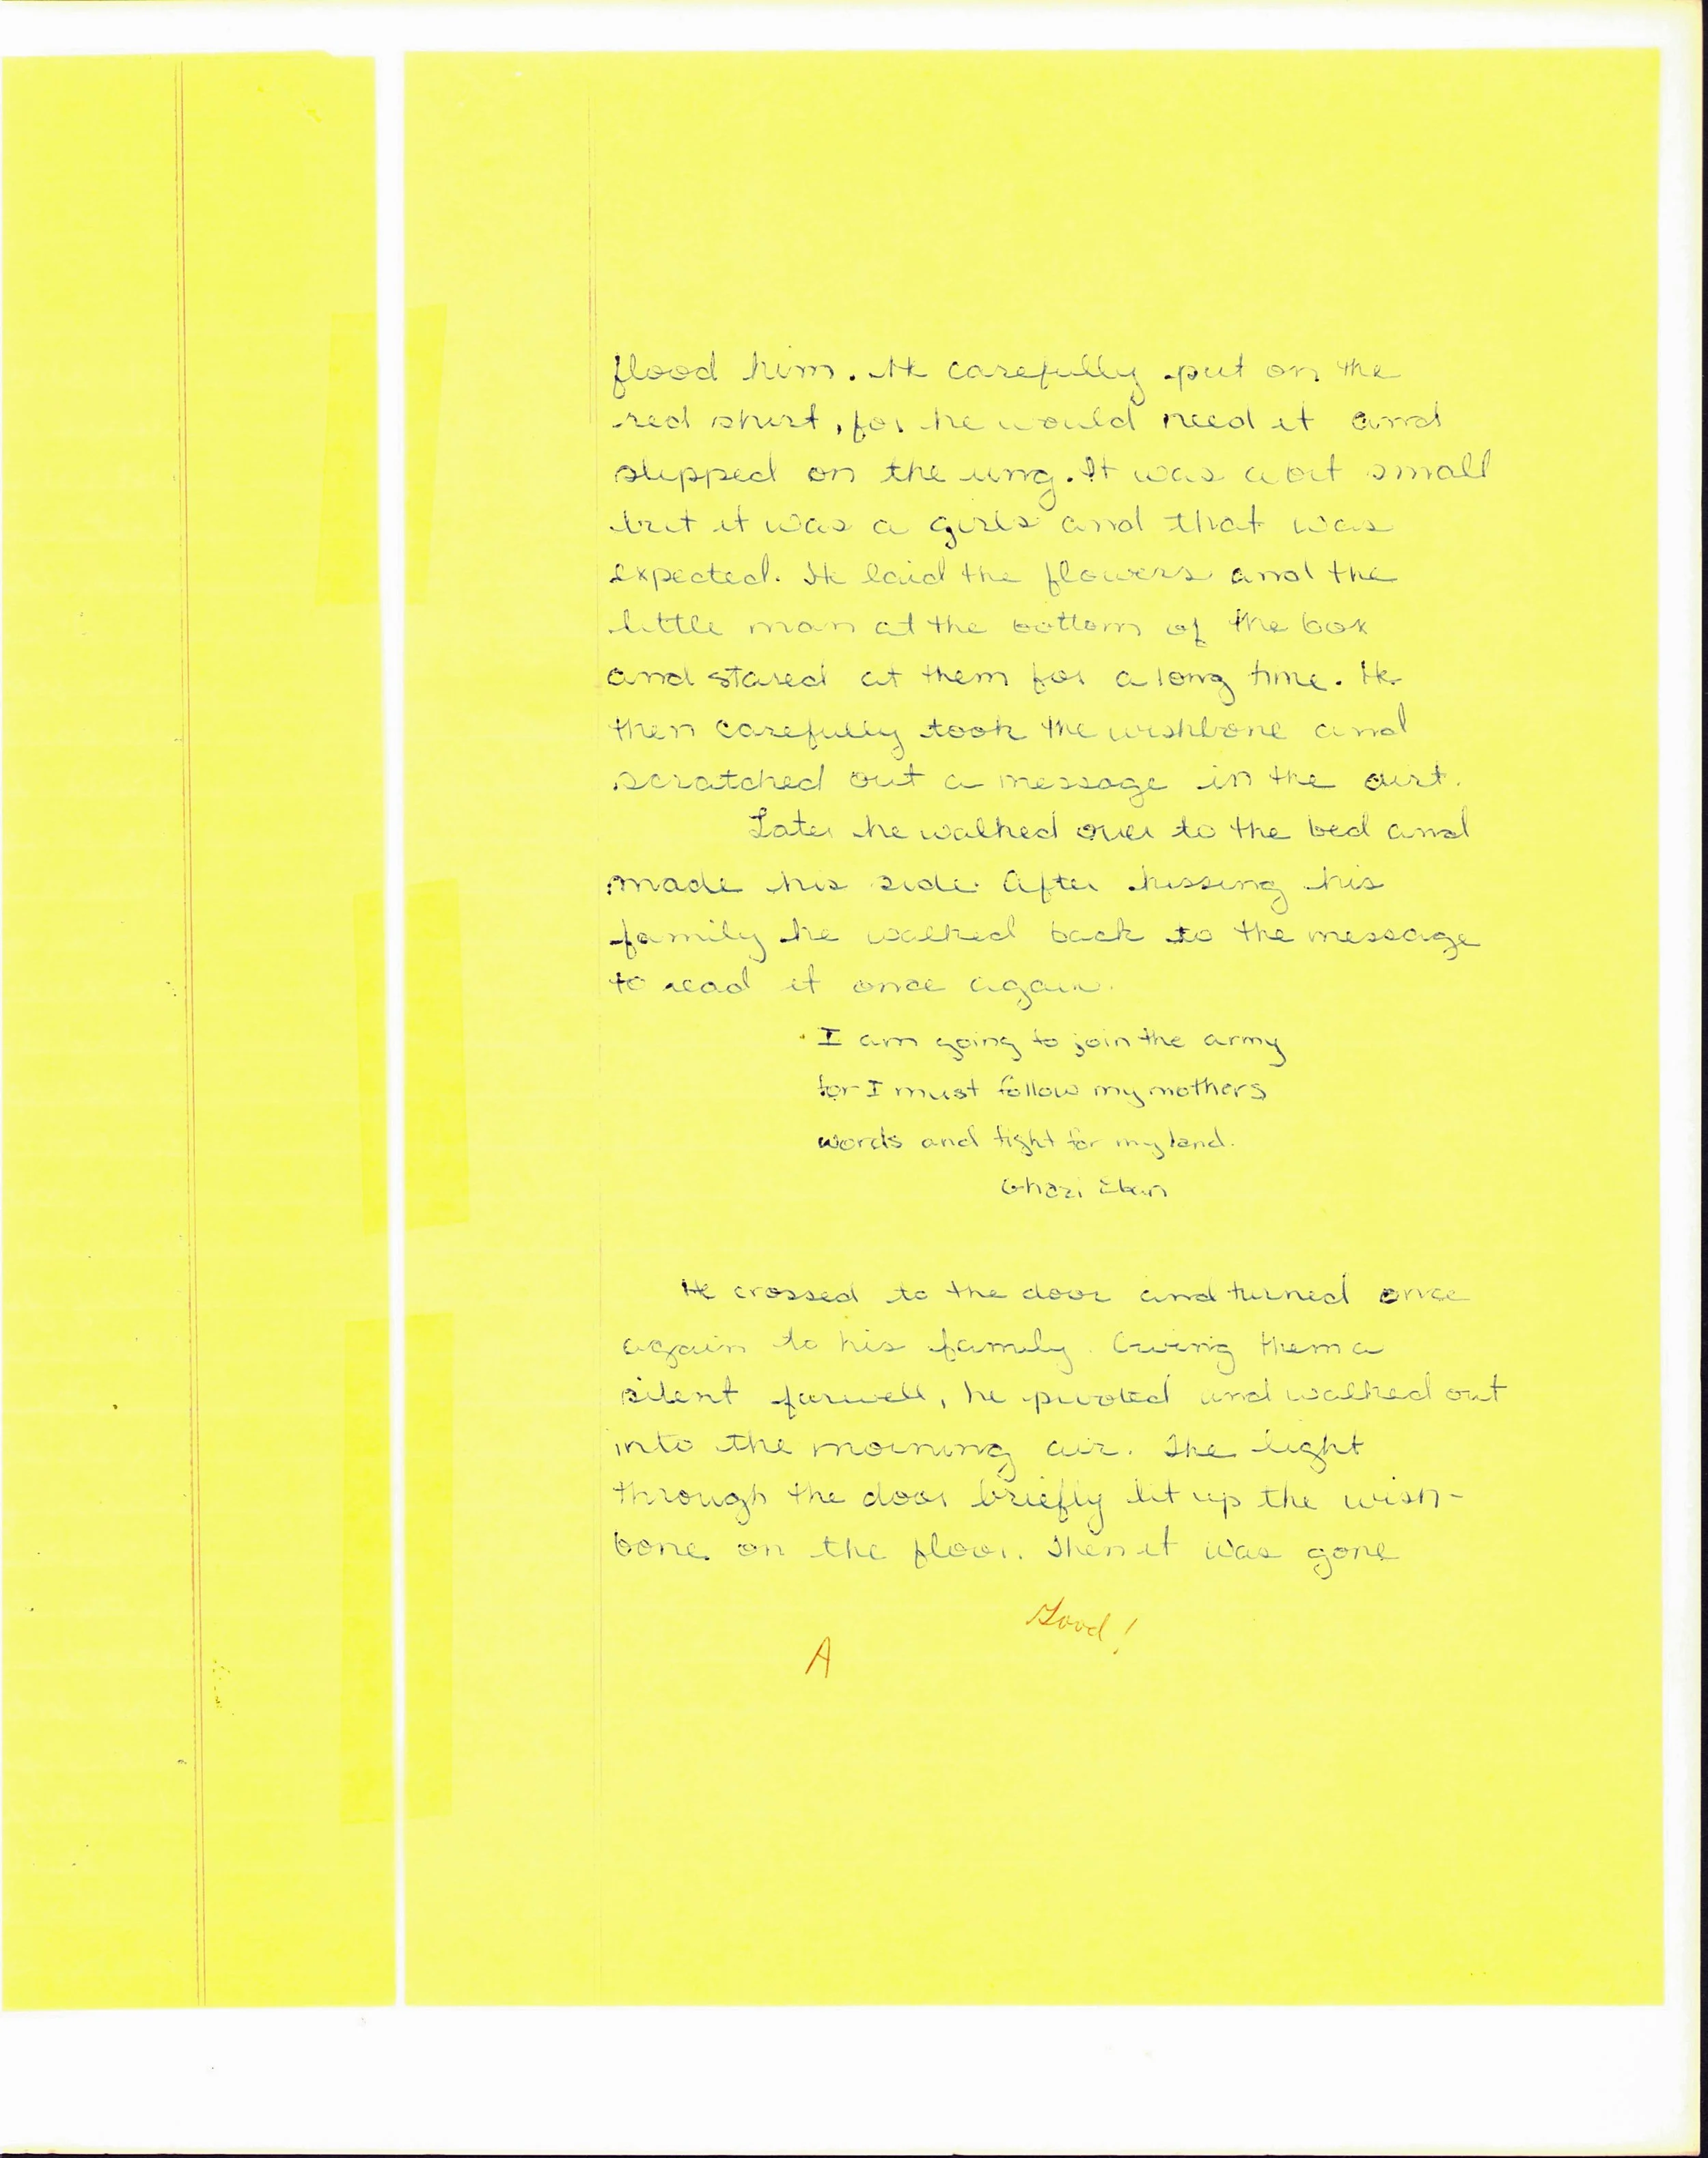 flood him. He carefully put on the
red shirt, for he would need it and
slipped on the ring. It was a bit small
but it was a girls and that was
expected. He laid the flowers and the
little man at the bottom of the box
and stared at them for a long time. He
then carefully took the wishbone and
scratched out a message in the dirt.
Later he walked over to the bed and
made his side. After kissing his
family he walked back to the message
to read it once again.
I am going to join the army
for I must follow my mothers
words and fight for my land.
Ghazi
He crossed to the door and turned once
again to his family. Giving them a
silent farwell, he pivoted and walked out
into the morning air. The light
through the door briefly lit up the wish-
bone on the floor. Then it was gone
Good!
A